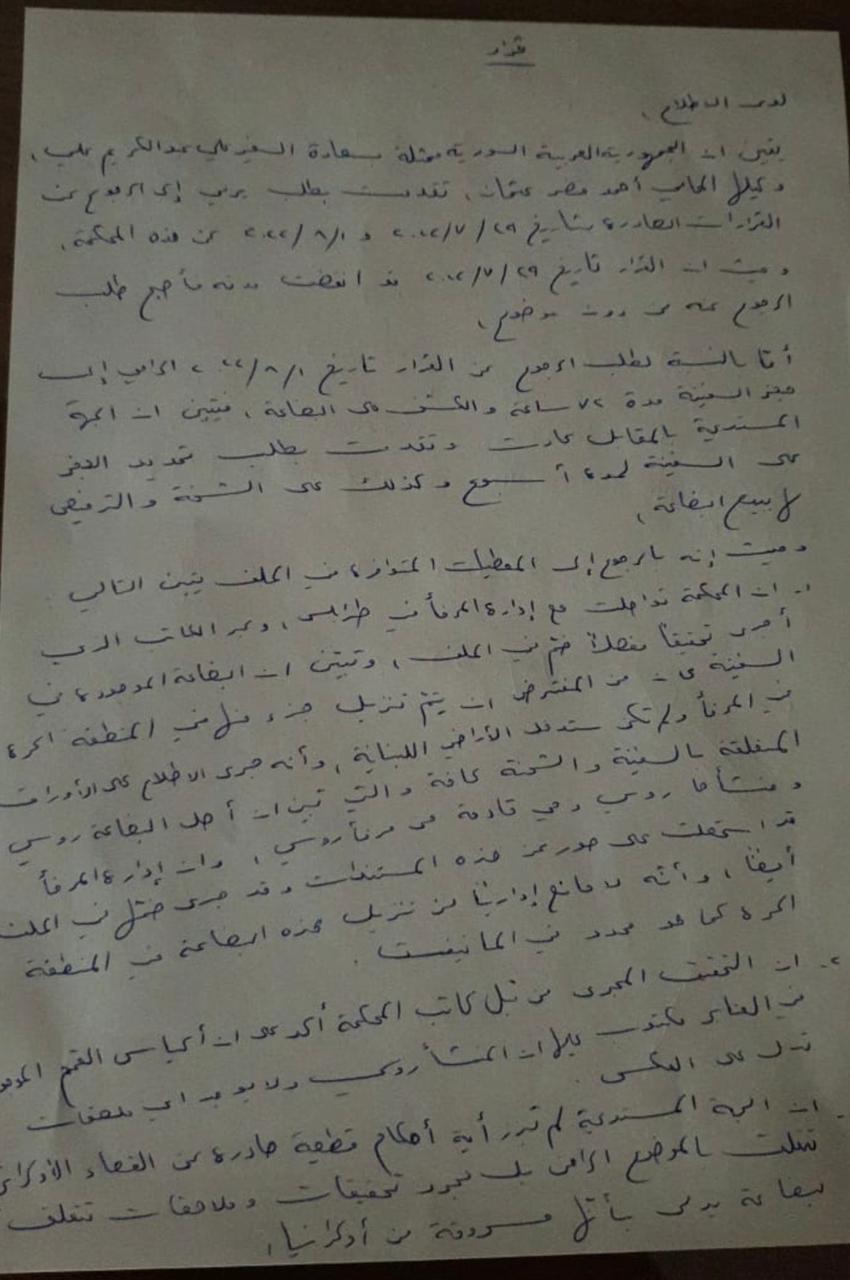 قرار
لدى الاطلاع،
يتبين ان الجمهورية العربية السورية ممثلة بسعادة السفير علي عبد الكريم علي،
وكيلها المحامي أحمد مصر عثمان، تقدمت بطلب يرمي إلى الرجوع عن
القرارات الصادرة بتاريخ ٢٩/٧/٢٠٢٢ و ١/٨/٢٠٢٢ عن هذه المحكمة،
وحيث ان القرار تاريخ ٢٩/٧/٢٠٢٢ قد انقضت مدته فأصبح طلب
الرجوع عنه من دون موضوع،
أمّا بالنسبة لطلب الرجوع عن القرار تاريخ ١/٨/٢٠٢٢ الرامي إلى
حجز السفينة مدة ٧٢ ساعة والكشف على البضاعة، فيتبين ان الجهة
المستدعية بالمقابل عادت وتقدمت بطلب تمديد الحجز
على السفينة لمدة أسبوع وكذلك على الشحنة والترخيص
لها ببيع البضاعة،
وحيث إنه بالرجوع إلى المعطيات المتوافرة في الملف يتبين التالي:
١- ان المحكمة تواصلت مع إدارة المرفأ في طرابلس، وعبر الكاتب الذي
أجرى تحقيقاً مفصلاً ضمّ في الملف، وتبيّن ان البضاعة الموجودة في
السفينة كان من المفترض ان يتمّ تنزيل جزء منها في المنطقة الحرة
في المرفأ ولم تكن ستدخل الأراضي اللبنانية، وأنه جرى الاطلاع على الأوراق
المتعلقة بالسفينة والشحنة كافة والتي تبين ان أصل البضاعة روسي
ومنشأها روسي وهي قادمة من مرفأ روسي، وان إدارة المرفأ
قد استحصلت على صور عن هذه المستندات وقد جرى ضمّها في الملف
أيضاً، وأنّه لا مانع إدارياً من تنزيل هذه البضاعة في المنطقة
الحرة كما هو محدد في المانيفست.
٢- ان التحقيق المجرى من قبل كاتب المحكمة أكد على ان أكياس القمح
في العنابر مكتوب عليها ان المنشأ روسي ولا يوجد اي ملصقات
تدل على العكس.
ان الجهة المستدعية لم تبرز أية أحكام قطعية صادرة عن القضاء الأوكراني
تتعلق بالموضوع الراهن بل مجرد تحقيقات وملاحقات تتعلق
ببضاعة يدعى بأنّها مسروقة من أوكرانيا،